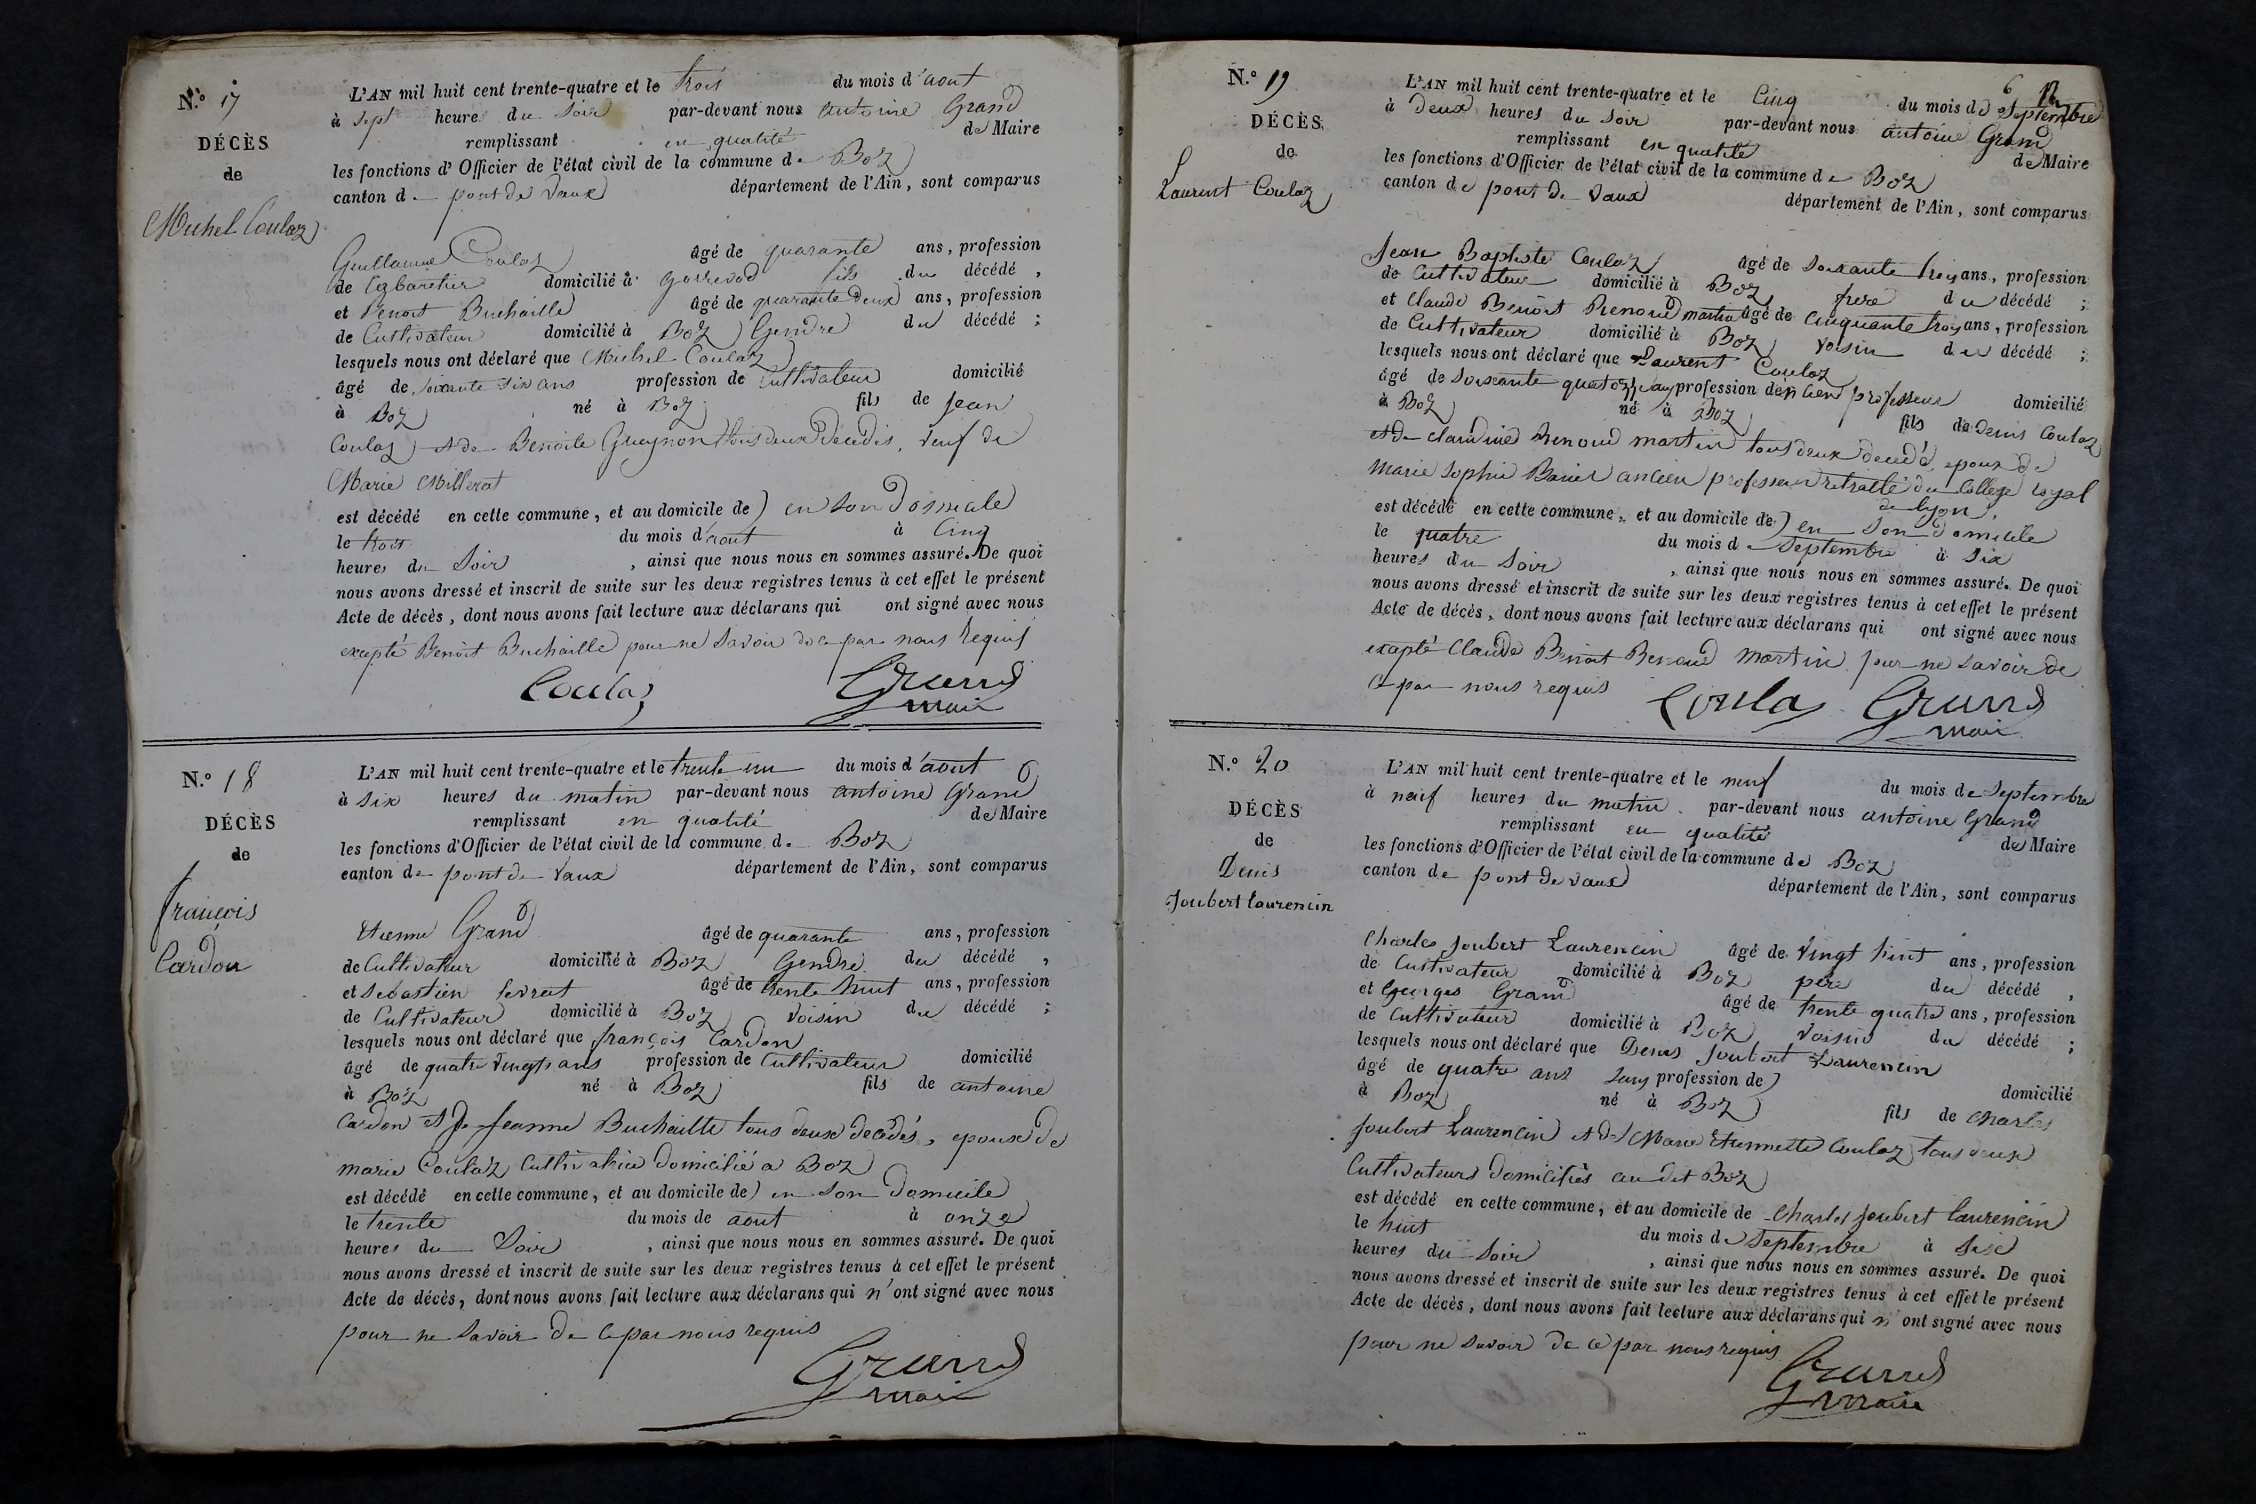 N.º 17
DÉCÈS
de
Michel Coulaz
L'AN mil huit cent trente-quatre et le trois du mois d'aout
à sept heures du Soir par-devant nous antoine Grand
remplissant en qualité de Maire
les fonctions d'Officier de l'état civil de la commune de Boz
canton de pont de Vaux département de l'Ain, sont comparus
Guillaume Coulaz âgé de quarante ans, profession
de Cabaretier domicilié à gorrevod fils du décédé,
et Benoit Buchaille âgé de quarante deux ans, profession
de Cultivateur domicilié à Boz Gendre du décédé;
lesquels nous ont déclaré que Michel Coulaz
âgé de soixante dix ans profession de Cultivateur domicilié
à Boz né à Boz fils de Jean
Coulaz et de Benoite Gueynon tous deux Décédés, Veuf de
Marie Millerat
est décédé en cette commune, et au domicile de) en son Domicile
le trois du mois d'aout à Cinq
heures du Soir, ainsi que nous nous en sommes assuré. De quoi
nous avons dressé et inscrit de suite sur les deux registres tenus à cet effet le présent
Acte de décès, dont nous avons fait lecture aux déclarans qui ont signé avec nous
excepté Benoit Buchaille pour ne Savoir de ce par nous Requis
Coulaz Grand
maire
N.º 18
DÉCÈS
de
françois
Cardon
L'AN mil huit cent trente-quatre et le trente un du mois d'aout
à Six heures du matin par-devant nous antoine Grand
remplissant en qualité de Maire
les fonctions d'Officier de l'état civil de la commune de Boz
canton de pont de Vaux département de l'Ain, sont comparus
Etienne Grand âgé de quarante ans, profession
de Cultivateur domicilié à Boz Gendre du décédé,
et Sébastien fevrat âgé de trente huit ans, profession
de Cultivateur domicilié à Boz Voisin du décédé;
lesquels nous ont déclaré que françois Cardon
âgé de quatre Vingts ans profession de Cultivateur domicilié
à Boz né à Boz fils de antoine
Cardon et de Jeanne Buchaille tous deux décédés, epoux de
marie Coulaz Cultivatrice domicilié a Boz
est décédé en cette commune, et au domicile de) en son domicile
le trente du mois de aout à onze
heures du Soir, ainsi que nous nous en sommes assuré. De quoi
nous avons dressé et inscrit de suite sur les deux registres tenus à cet effet le présent
Acte de décès, dont nous avons fait lecture aux déclarans qui n'ont signé avec nous
pour ne Savoir de ce par nous requis
Grand
maire
6
N.º 19
DÉCÈS
de
Laurent Coulaz
L'AN mil huit cent trente-quatre et le Cinq du mois de Septembre
à Deux heures du Soir par-devant nous antoine Grand
remplissant en qualité de Maire
les fonctions d'Officier de l'état civil de la commune de Boz
canton de pont de Vaux département de l'Ain, sont comparus
Jean Baptiste Coulaz âgé de Soixante trois ans, profession
de Cultivateur domicilié à Boz frere du décédé;
et Claude Benoit Renoud martin âgé de Cinquante trois ans, profession
de Cultivateur domicilié à Boz Voisin du décédé;
lesquels nous ont déclaré que Laurent Coulaz
âgé de Soixante quatorze ans profession de ancien professeur domicilié
à Boz né à Boz fils de Denis Coulaz
et de claudine Renoud martin tous deux décédé, epoux de
Marie Sophie Baniel ancien professeur retraité du College royal
de lyon,
est décédé en cette commune, et au domicile de) en Son domicile
le quatre du mois de Septembre à Six
heures du Soir, ainsi que nous nous en sommes assuré. De quoi
nous avons dressé et inscrit de suite sur les deux registres tenus à cet effet le présent
Acte de décès, dont nous avons fait lecture aux déclarans qui ont signé avec nous
excepté Claude Benoit Renoud Martin pour ne Savoir de
ce par nous requis Coulaz Grand
maire
N.º 20
DÉCÈS
de
Denis
Joubert Laurencin
L'AN mil huit cent trente-quatre et le neuf du mois de Septembre
à neuf heures du matin par-devant nous antoine Grand
remplissant en qualité de Maire
les fonctions d'Officier de l'état civil de la commune de Boz
canton de pont de Vaux département de l'Ain, sont comparus
Charles Joubert Laurencin âgé de Vingt huit ans, profession
de Cultivateur domicilié à Boz père du décédé,
et Georges Grand âgé de trente quatre ans, profession
de Cultivateur domicilié à Boz Voisin du décédé;
lesquels nous ont déclaré que Denis Joubert Laurencin
âgé de quatre ans Sans profession de) domicilié
à Boz né à Boz fils de Charles
Joubert Laurencin et de Marie Etiennette Coulaz tous deux
Cultivateurs domiciliés au dit Boz
est décédé en cette commune, et au domicile de Charles Joubert Laurencin
le huit du mois de Septembre à Six
heures du Soir, ainsi que nous nous en sommes assuré. De quoi
nous avons dressé et inscrit de suite sur les deux registres tenus à cet effet le présent
Acte de décès, dont nous avons fait lecture aux déclarans qui n'ont signé avec nous
pour ne Savoir de ce par nous requis
Grand
maire